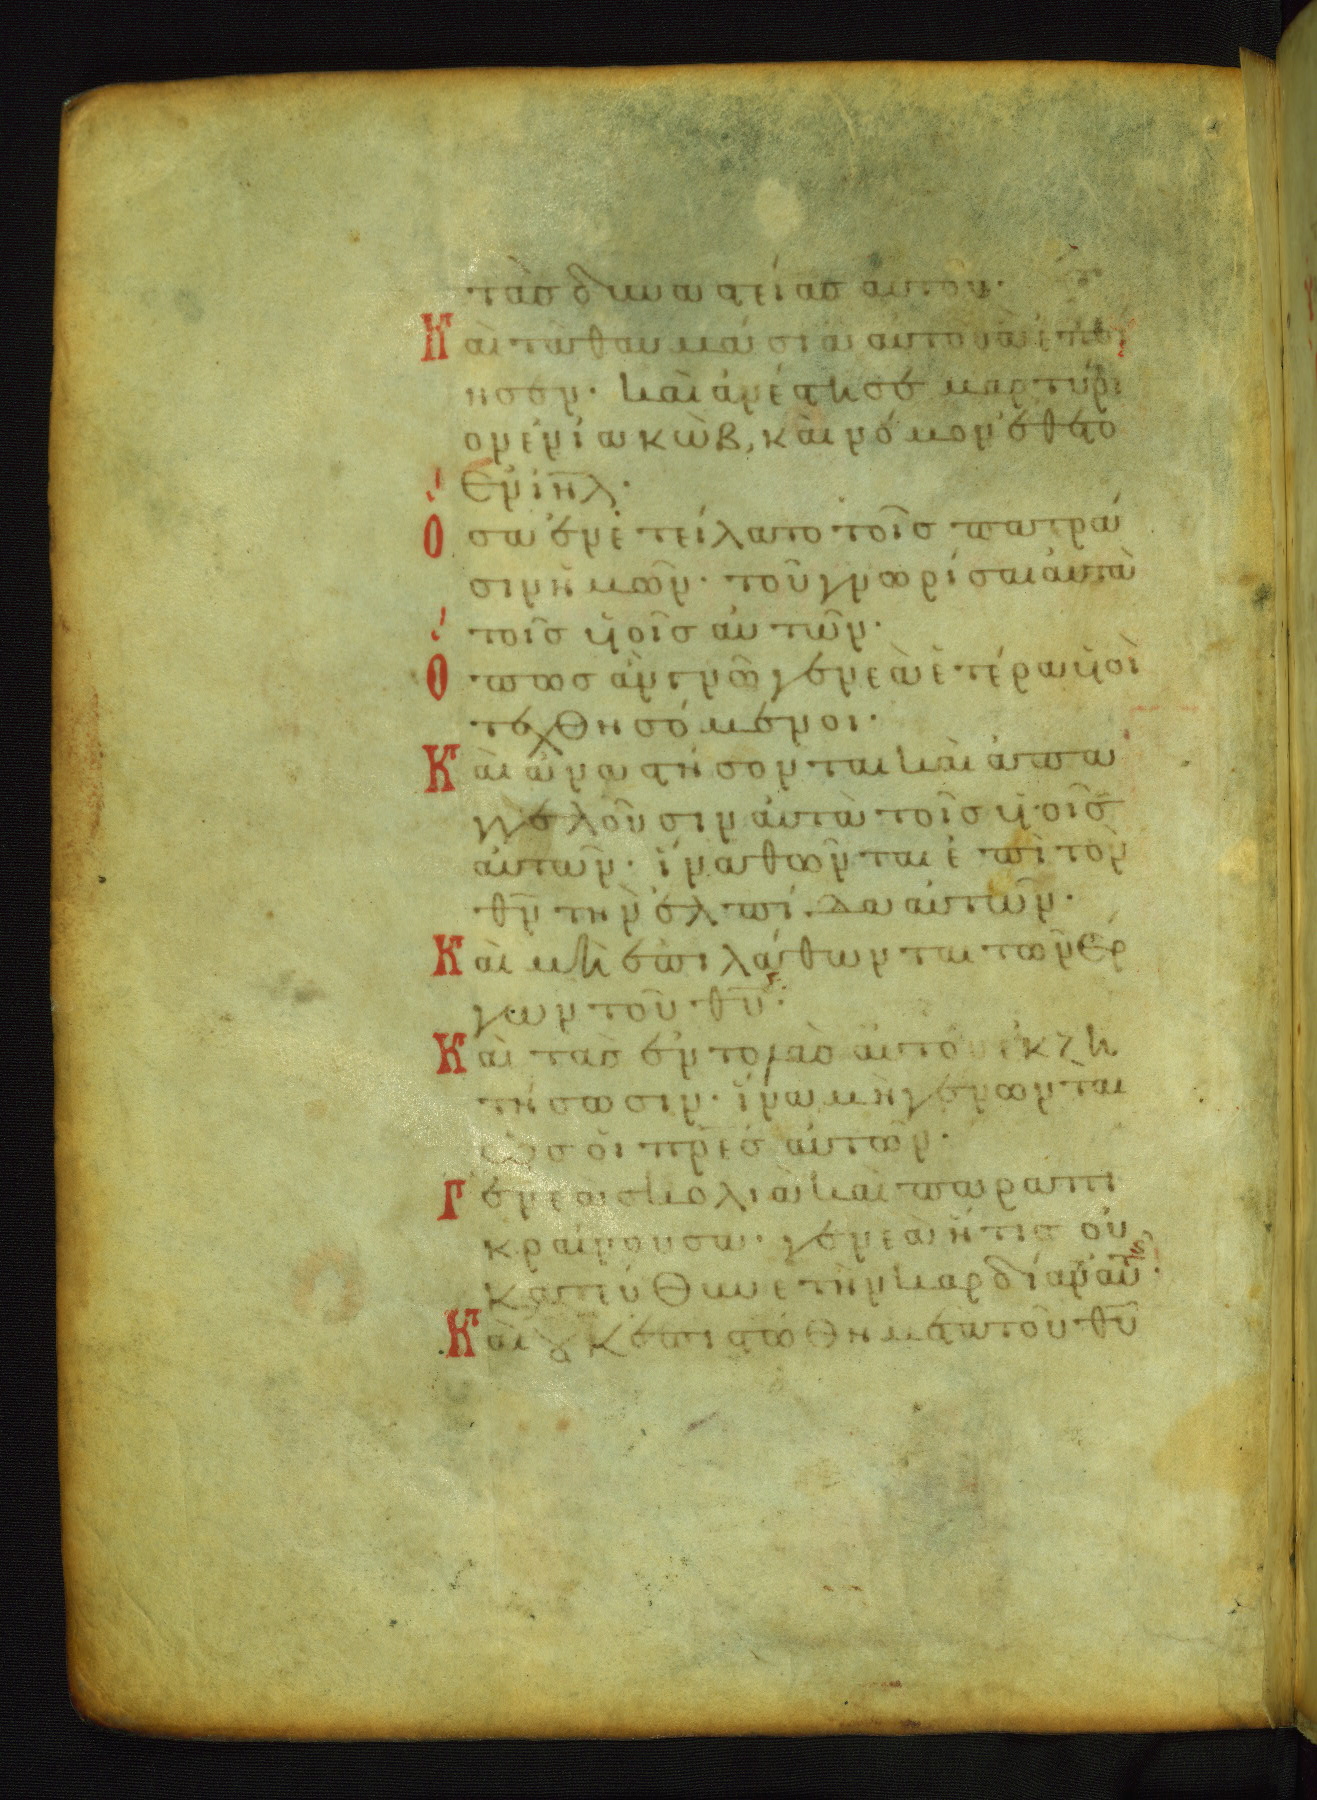 τὰσ δυναστείασ αυτου·
Καὶ τὰ θαυμάσια αυτοῦ ἃ ἐποί
ησεν· καὶ ἀνέστησε μαρτύρι
ον ἐν ἰακὼβ, καὶ νόμον ἔθετο
Ἐν ιηλ·
Οσα ἐνετείλατο τοῖσ πατρά
σιν ἡμῶν· τοῦ γνωρίσαι ἀυτὰ
τοῖσ ὑοῖσ αὐτῶν·
Οπωσ ἂν γνῶ γενεὰ ἑτέρα ὑοὶ
τεχθησόμενοι·
Καὶ ἀναστήσονται καὶ ἀπα
γγελοῦσιν ἀυτὰ τοῖσ ὑοῖσ
ἀυτῶν· ἵνα θῶνται ἐπὶ τὸν
θν τὴν ἐλπίδα αὐτῶν·
Καὶ μὴ ἐπιλάθωνται τῶν ἔρ
γων τοῦ θυ·
Καὶ τὰσ ἐντολὰσ ἀυτοῦ ἐκζη
τήσωσιν· ἵνα μὴ γένωνται
ὡσ ὁι πρεσ ἀυτῶν·
Γενεὰ σκολιὰ καὶ παραπι
κραίνουσα· γενεὰ ἥτισ οὐ
κατεύθυνε τὴν καρδίαν αυτῆσ·
Καὶ ȣκ ἐπιστώθη μετὰ τοῦ θυ